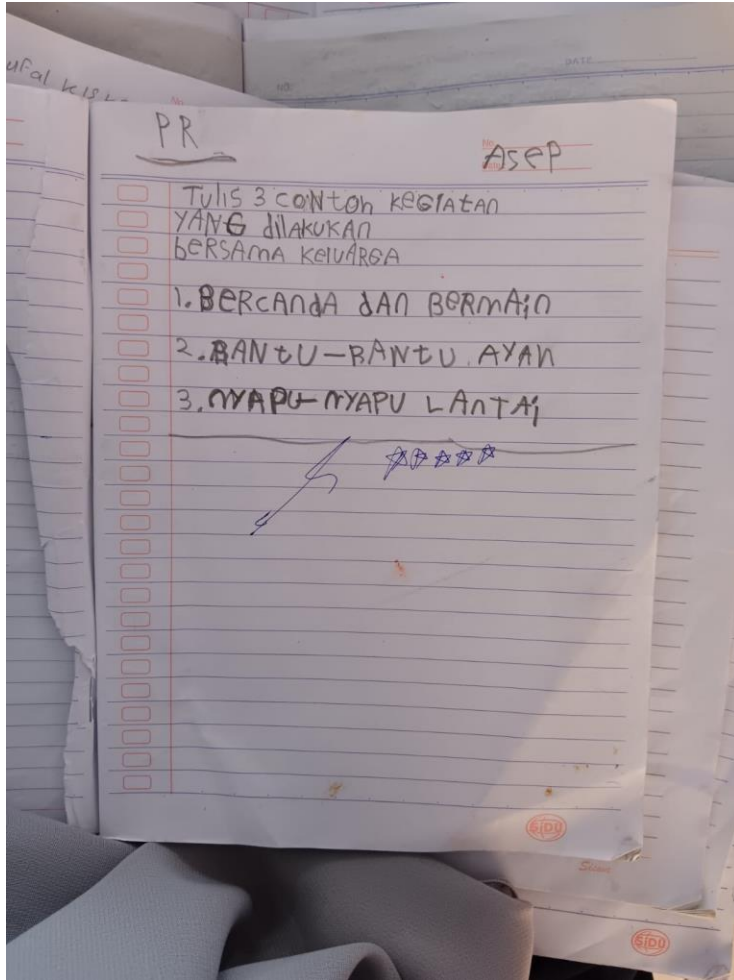 DATE
NO
No
PR
No
Date
Asep
Tulis 3 contoh kegiatan
YANG dilAKUKAN
beRSAMA KelUARGA
1. BERCANdA dAn BeRMAin
2. BANtU-BANtU AYAH
3. NYAPU-NYAPU LAnTAi
SiDU
SiDU